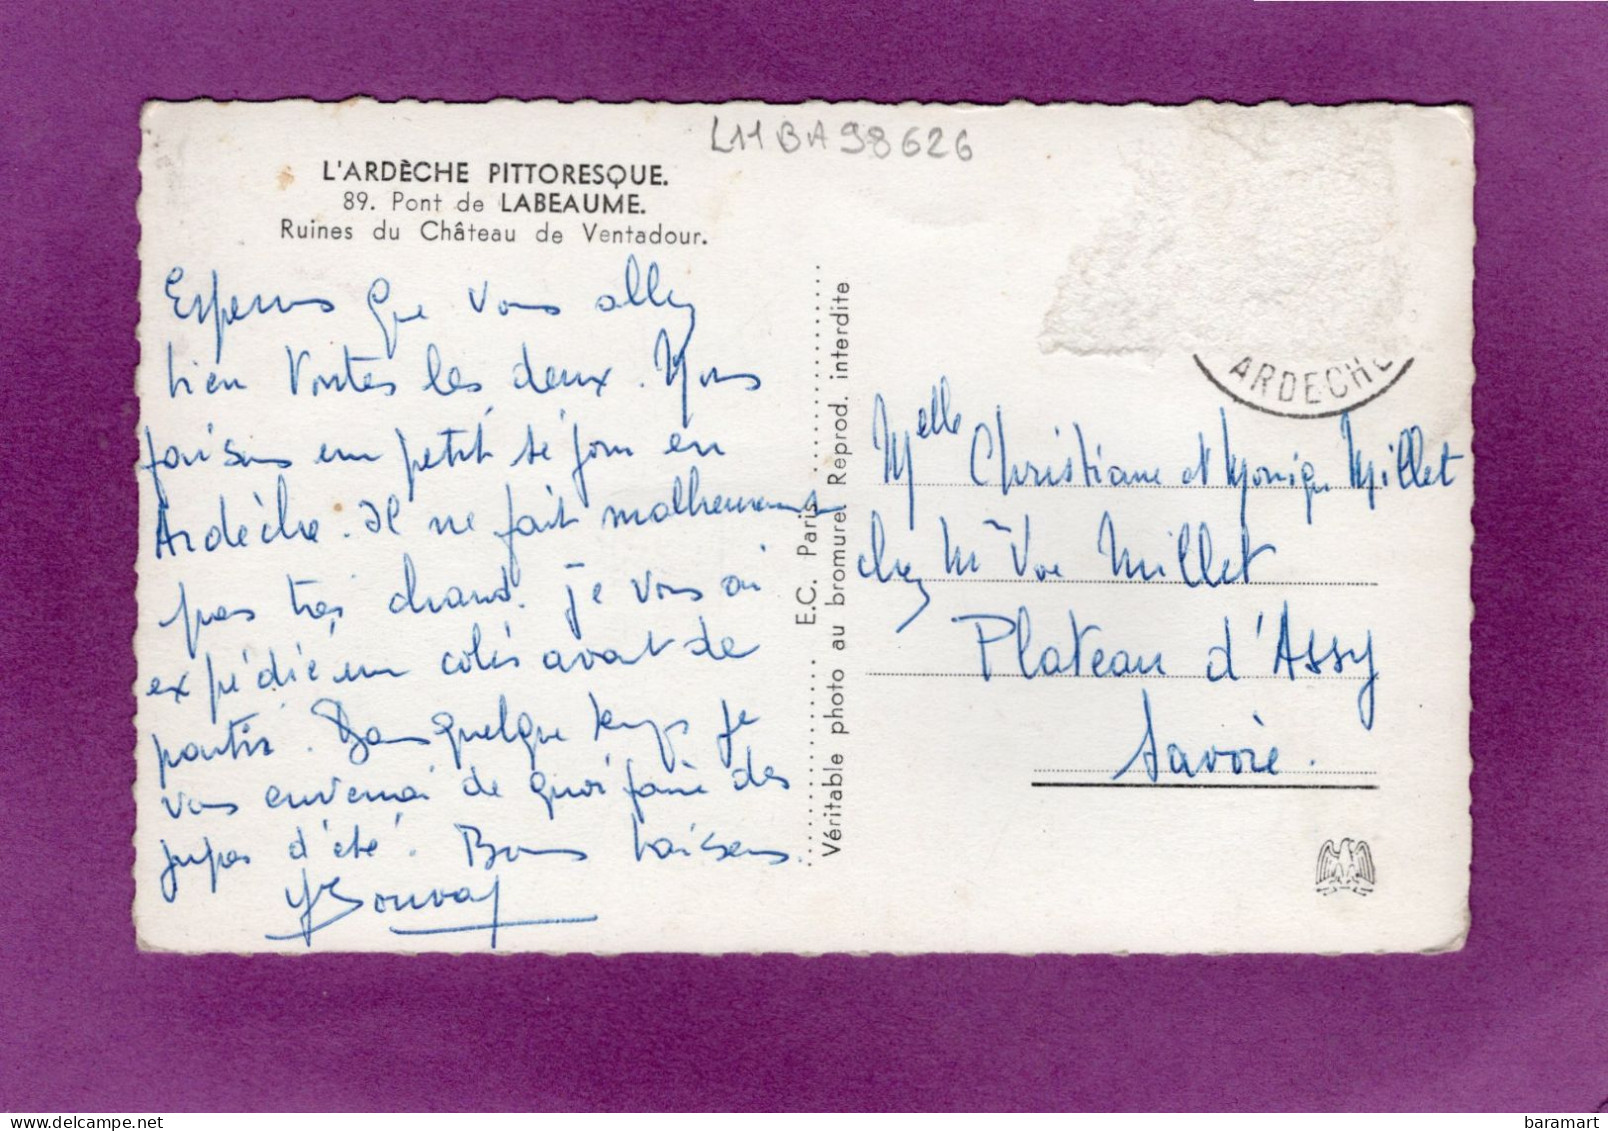 L11BA98626
L'ARDÈCHE PITTORESQUE.
89. Pont de LABEAUME.
Ruines du Château de Ventadour.
Esperons que vous allez
bien toutes les deux. Nous
faisons un petit séjour en
Ardèche. Il ne fait malheureusement
pas très chaud. Je vous ai
expédié un colis avant de
partir. Dans quelque temps je
vous enverrai de quoi faire des
jupes d'été. Bons baisers.
E.C. Paris
Véritable photo au bromure. Reprod. interdite
ARDECHE
Melle Christiane et Monique Millet
chez Me Vve Millet
Plateau d'Assy
Savoie.
baramart